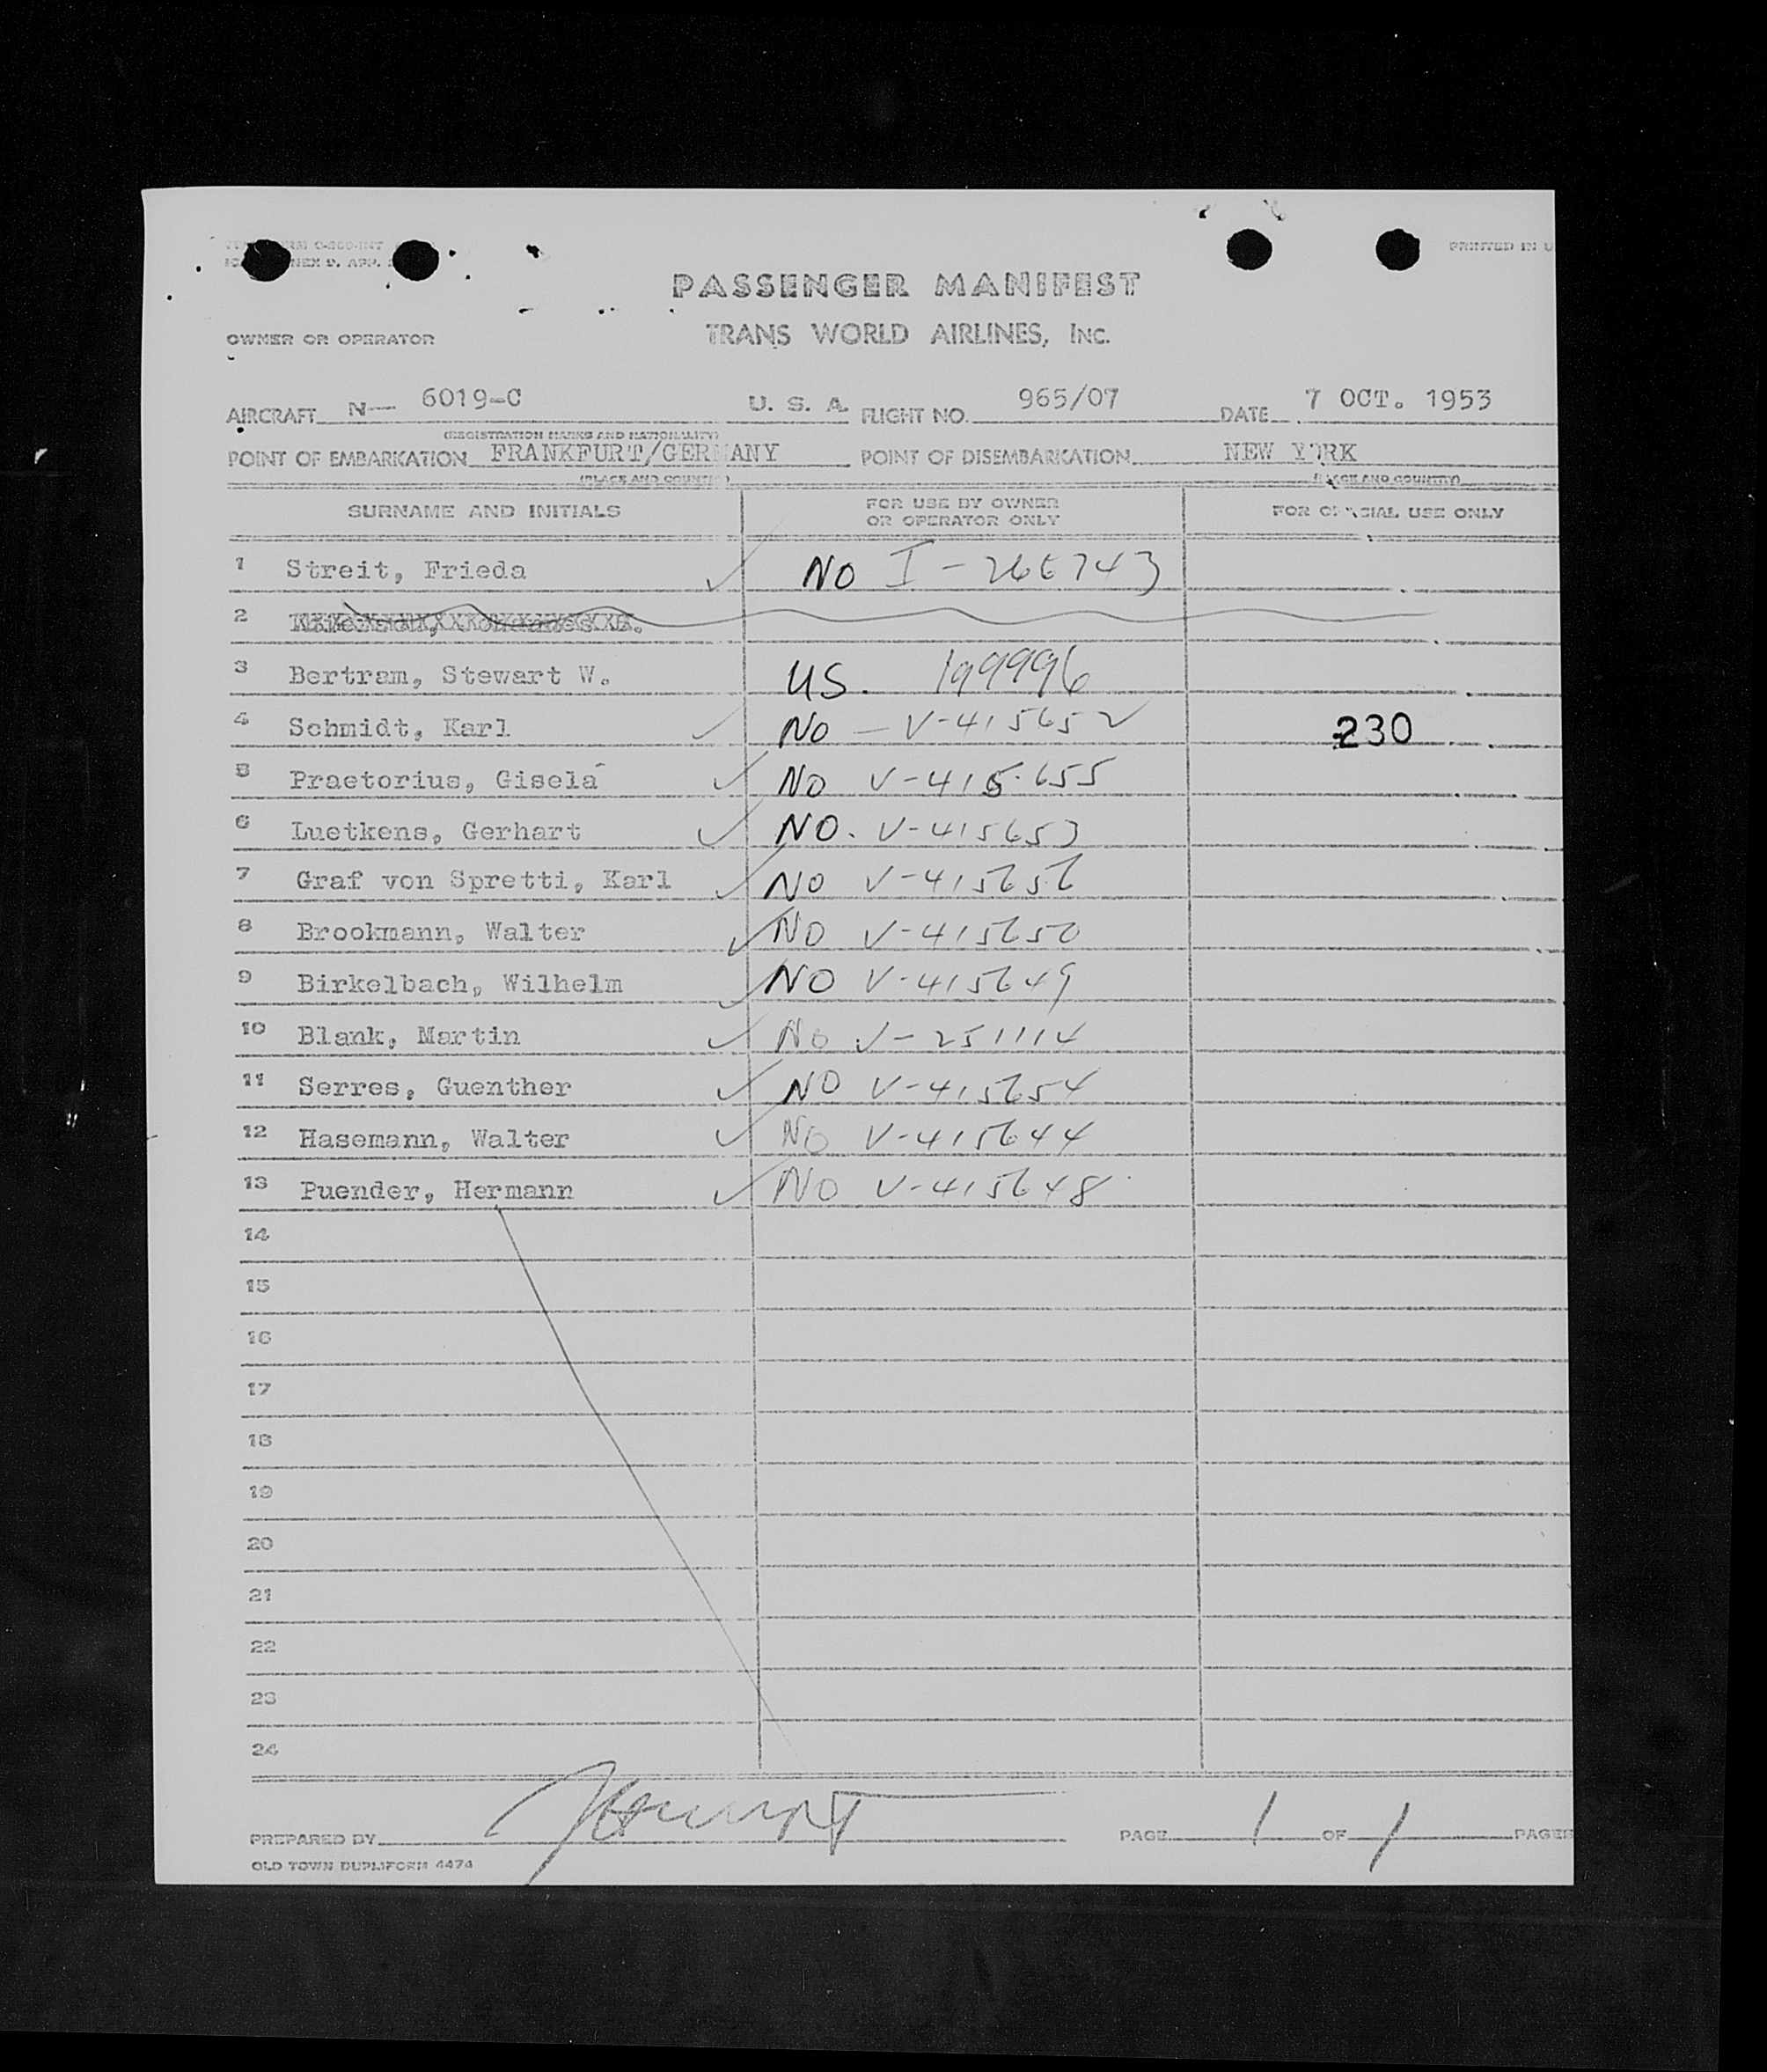 PRINTED IN U
PASSENGER MANIFEST
OWNER OR OPERATOR TRANS WORLD AIRLINES, INC.
AIRCRAFT N— 6019-C U. S. A. FLIGHT NO. 965/07 DATE 7 OCT. 1953
(REGISTRATION MARKS AND NATIONALITY)
POINT OF EMBARKATION FRANKFURT/GERMANY POINT OF DISEMBARKATION NEW YORK
(PLACE AND COUNTRY) (PLACE AND COUNTRY)
SURNAME AND INITIALS FOR USE BY OWNER OR OPERATOR ONLY FOR OFFICIAL USE ONLY
1 Streit, Frieda ✓ NO I-266743
2
3 Bertram, Stewart W. US. 199996
4 Schmidt, Karl ✓ No — V-415652 230
5 Praetorius, Gisela ✓ NO V-415655
6 Luetkens, Gerhart ✓ NO. V-415653
7 Graf von Spretti, Karl ✓ NO V-415656
8 Brookmann, Walter ✓ NO V-415650
9 Birkelbach, Wilhelm ✓ NO V-415649
10 Blank, Martin ✓ No V-251114
11 Serres, Guenther ✓ NO V-415654
12 Hasemann, Walter ✓ NO V-415644
13 Puender, Hermann ✓ NO V-415648
14
15
16
17
18
19
20
21
22
23
24
PREPARED BY PAGE 1 OF 1 PAGES
OLD TOWN DUPLIFORM 4474